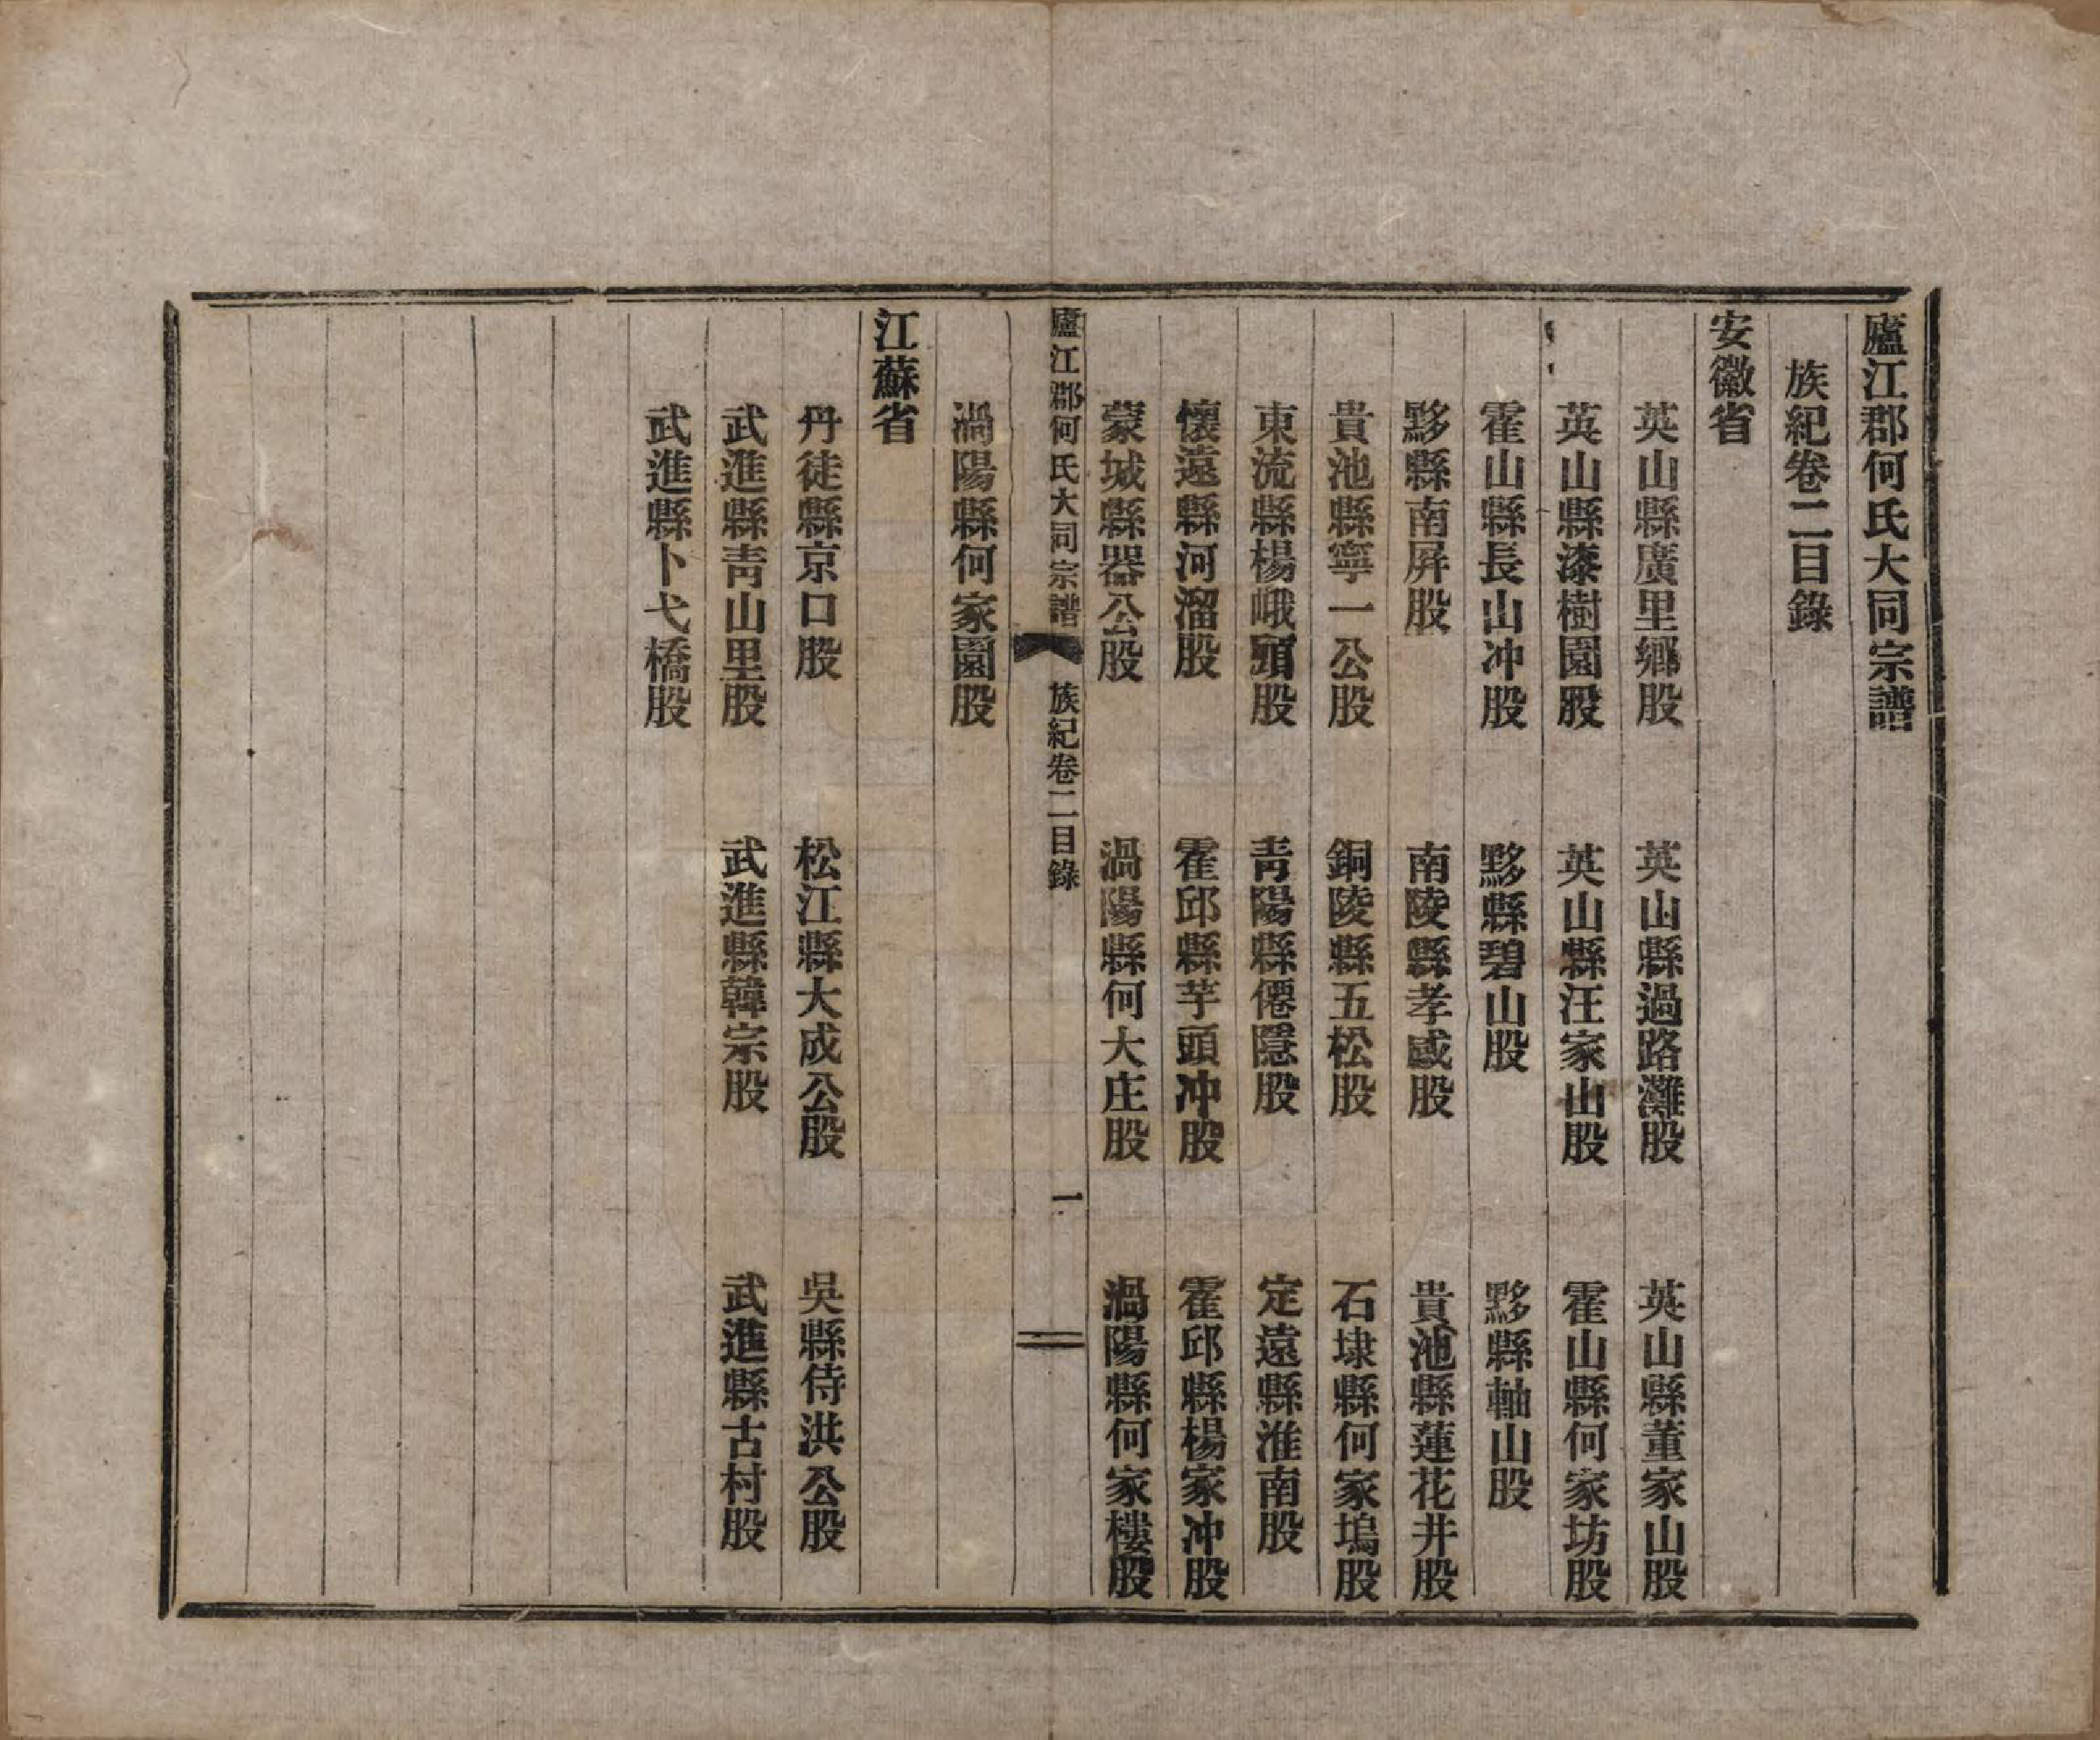 廬江郡何氏大同宗譜
族紀卷二目錄
安徽省
英山縣廣里鄉股　英山縣過路灘股　英山縣董家山股
英山縣漆樹園股　英山縣汪家山股　霍山縣何家坊股
霍山縣長山冲股　黟縣碧山股　黟縣軸山股
黟縣南屏股　南陵縣孝感股　貴池縣蓮花井股
貴池縣寧一公股　銅陵縣五松股　石埭縣何家塢股
東流縣楊峨頭股　青陽縣僊隱股　定遠縣淮南股
懷遠縣河溜股　霍邱縣芋頭冲股　霍邱縣楊家冲股
蒙城縣器公股　渦陽縣何大庄股　渦陽縣何家樓股
廬江郡何氏大同宗譜　族紀卷二目錄　一
渦陽縣何家園股
江蘇省
丹徒縣京口股　松江縣大成公股　吳縣侍洪公股
武進縣青山里股　武進縣韓宗股　武進縣古村股
武進縣卜弋橋股